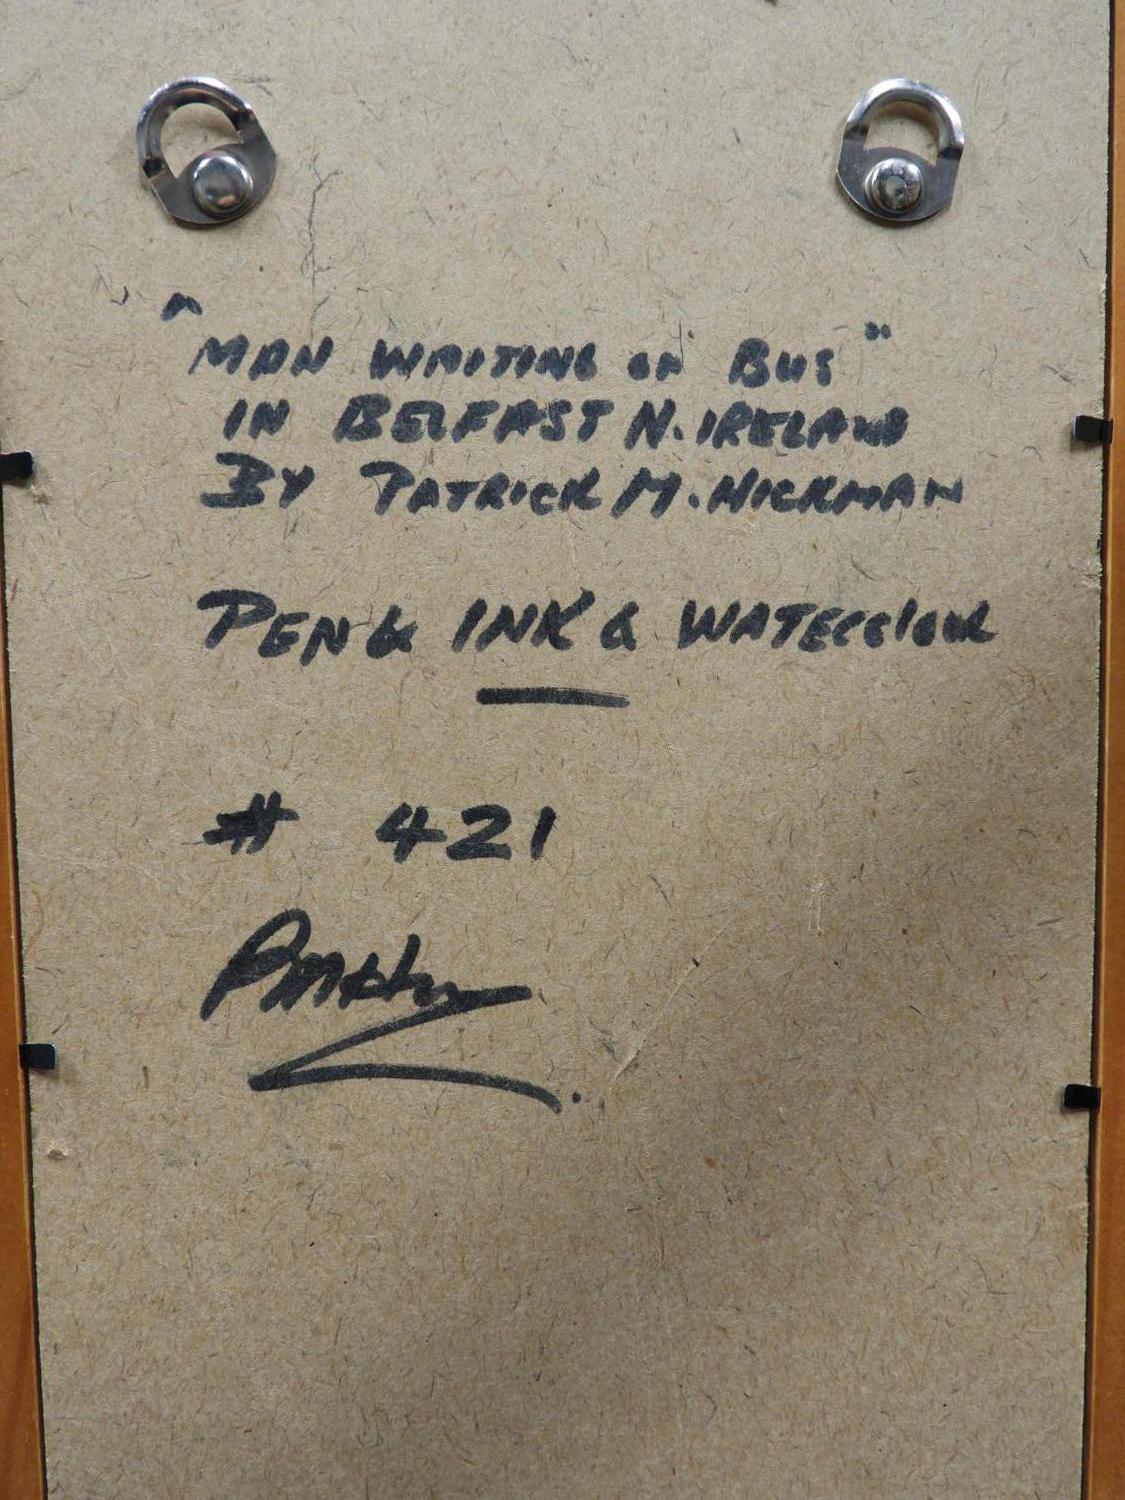 "MAN WAITING ON BUS"
IN BELFAST N. IRELAND
BY PATRICK M. HICKMAN
PEN & INK & WATERCOLOUR
# 421